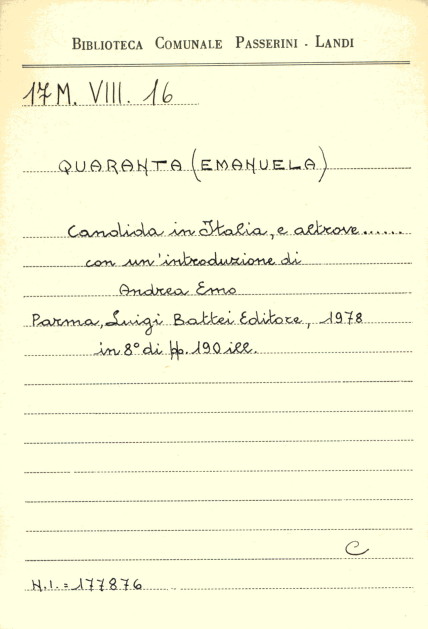 BIBLIOTECA COMUNALE PASSERINI - LANDI
17 M. VIII. 16
QUARANTA (EMANUELA)
Candida in Italia, e altrove......
con un'introduzione di
Andrea Emo
Parma, Luigi Battei Editore, 1978
in 8° di pp. 190 ill.
C
N.I. = 177876